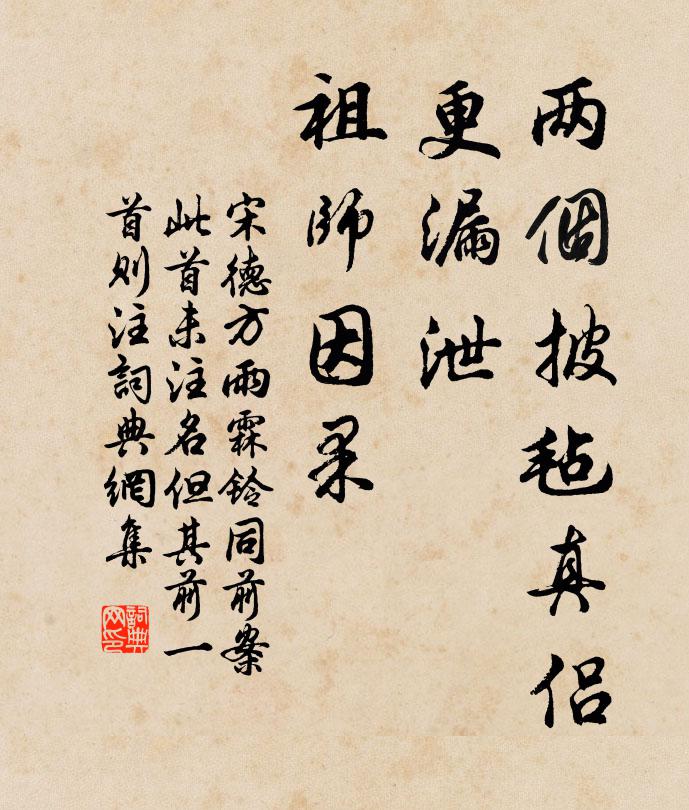 两個披毡真侣
更漏泄
祖師因果
宋德方雨霖铃同前案
此首未注名但其前一
首则注詞典網集
詞典
网印